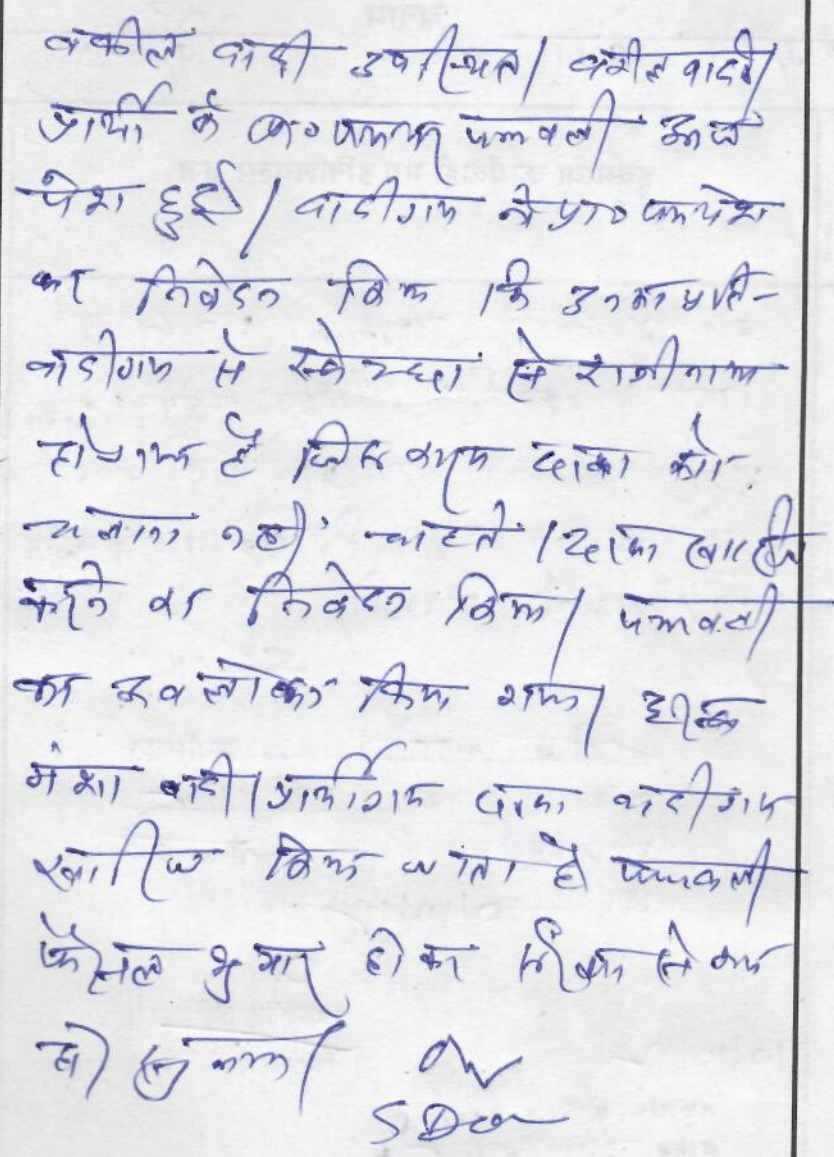 वकील वादी उपस्थित। वकील वादी/
प्रार्थी के प्रा० पत्र पर पत्रावली आज
पेश हुई। वादीगण ने प्रा० पत्र पेश
कर निवेदन किया कि उनका प्रति-
वादीगण से स्वेच्छा से राजीनामा
हो गया है जिस कारण दावा को
चलाना नहीं चाहते। दावा खारीज
करने का निवेदन किया। पत्रावली
का अवलोकन किया गया।
मंशा वादी/प्रार्थीगण दावा वादीगण
खारिज किया जाता है पत्रावली
फैसल शुमार होकर नम्बर से कम
हो।